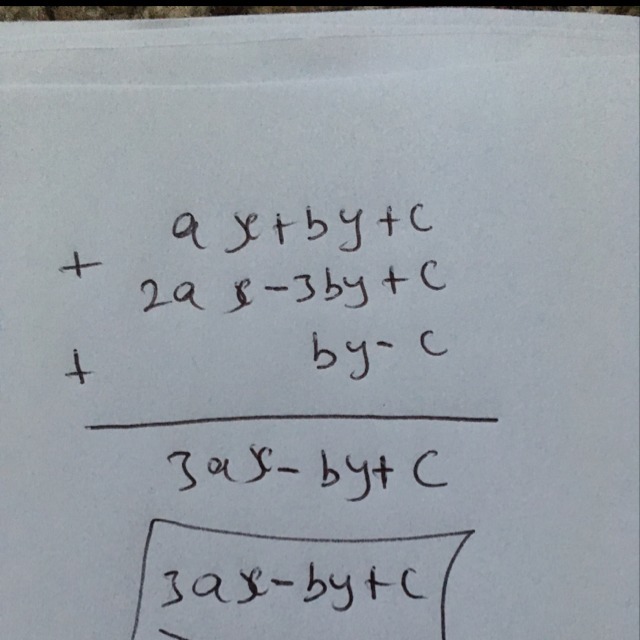 ax+by+c
+
2ax-3by+c
by-c
+
3ax-by+c
3ax-by+c